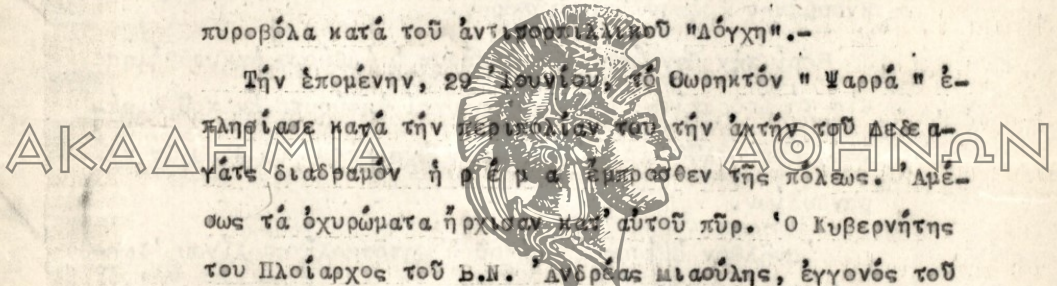 πυροβόλα κατά τοῦ ἀντιτορπιλλικοῦ "Λόγχη".-
Τήν ἑπομένην, 29 Ἰουνίου, τό Θωρηκτόν " Ψαρρά " ἐ-
πλησίασε κατά τήν περιπολίαν του τήν ἀκτήν τοῦ Δεδεα-
γάτς διαδραμόν ἠ ρ έ μ α ἔμπροσθεν τῆς πόλεως. Ἀμέ-
σως τά ὀχυρώματα ἤρχισαν κατ' αὐτοῦ πῦρ. Ὁ Κυβερνήτης
του Πλοίαρχος τοῦ Β.Ν. Ἀνδρέας Μιαούλης, ἐγγονός τοῦ
ΑΚΑΔΗΜΙΑ ΑΘΗΝΩΝ